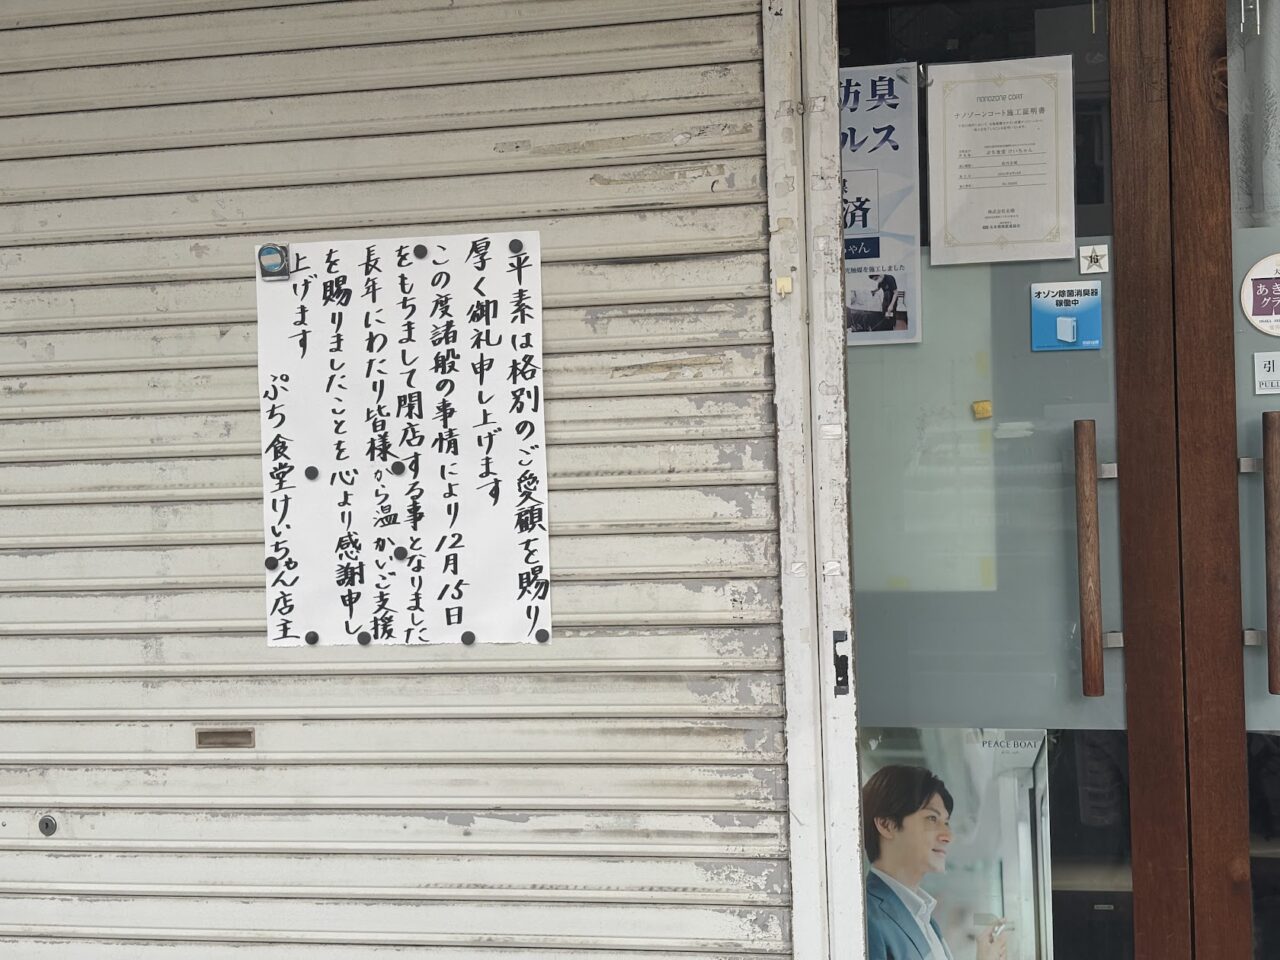 平素は格別のご愛顧を賜り
厚く御礼申し上げます
この度諸般の事情により12月15日
をもちまして閉店する事となりました
長年にわたり皆様から温かいご支援
を賜りましたことを心より感謝申し
上げます
ぷち食堂けいちゃん店主
防臭
ルス
済
ちゃん
光触媒を施工しました
nanozone COAT
ナノゾーンコート施工証明書
ぷち食堂 けいちゃん
16
オゾン除菌消臭器
稼働中
maxell
あき
グラ
引
PULL
PEACE BOAT